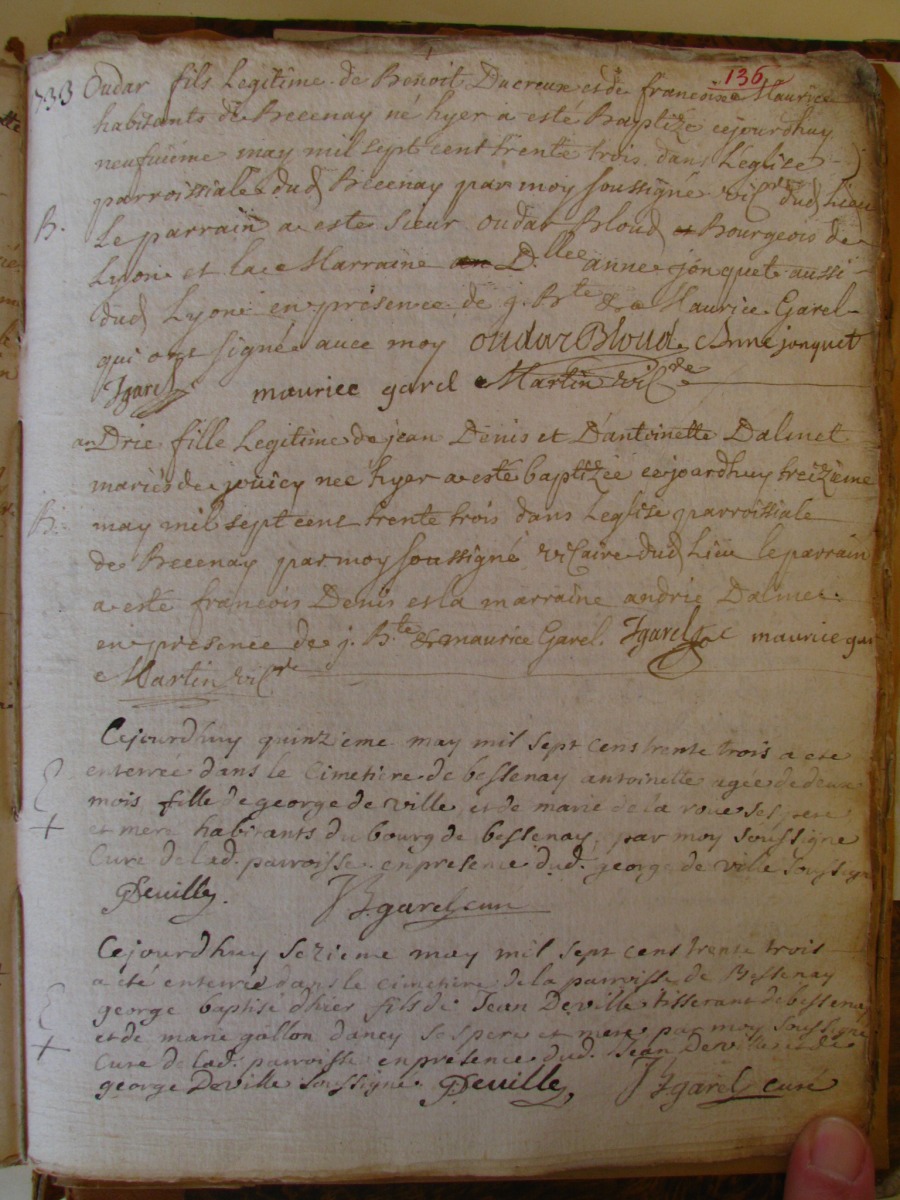 136
1733 Oudar fils Legitime de Benoit Ducreux et de francoise Maurice
habitants de Becenay né hyer a esté Baptizé cejourdhuy
neufuieme may mil sept cent trente trois dans Leglise
parroissiale dud Becenay par moy soussigné vicre dud Lieu
B. Le parrain a este Sieur oudar Bloud Bourgeois de
Lyon et la Marraine Dlle anne jonquet aussi
dud Lyon en presence de j. Bte & Maurice Garel
qui ont signé avec moy oudar Bloud Anne jonquet
Jgarel maurice garel Martin vicre
anDrie fille Legitime de jean Denis et D'antoinette Dalmet
mariés de jouicy nee hyer a este baptizée cejourdhuy treizieme
B. may mil sept cent trente trois dans Leglise parroissiale
de Becenay par moy soussigné vicaire dud Lieu le parrain
a esté francois Denis et la marraine andrie Dalmet
en presence de j. Bte & maurice Garel. Jgarel maurice gar
Martin vicre
Cejourdhuy quinzieme may mil sept cens trente trois a ete
enterrée dans le Cimetiere de bessenay antoinette agée de deux
mois fille de george de ville et de marie de la roue ses pere
+ et mere habitants du bourg de bessenay, par moy soussigne
Curé de lad. parroisse en presence dud. george de ville soussigne
GDeville. Jgarel curé
Cejourdhuy sezieme may mil sept cens trente trois
a été enterré dans le cimetiere de la parroisse de Bessenay
george baptisé dhier fils de Jean Deville tisserant de bessenay
+ et de marie gollon dancy ses pere et mere par moy soussigné
Curé de lad. parroisse en presence dud. Jean Deville et de
george Deville soussigné GDeville Jgarel curé